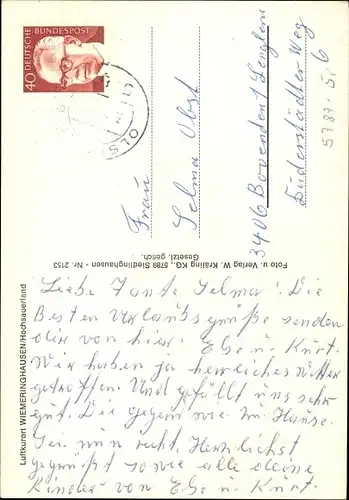 Luftkurort WIEMERINGHAUSEN/Hochsauerland
Liebe Tante Selma! Die
Besten Urlaubsgrüße senden
dir von hier: Else u. Kurt.
Wir haben ja herrliches Wetter
getroffen. Und gefällt uns sehr
gut. Die gegem wie im Hause.
Sei nun recht Herzlichst
gegrüßt sowie alle deine
Kinder von Else u. Kurt
Foto u. Verlag W. Kräling KG., 5789 Siedlinghausen - Nr. 2153
Gesetzl. gesch.
40 DEUTSCHE BUNDESPOST
Frau
Selma Obst
3406 Bovenden 1 Lenglern
Duderstädter Weg 6